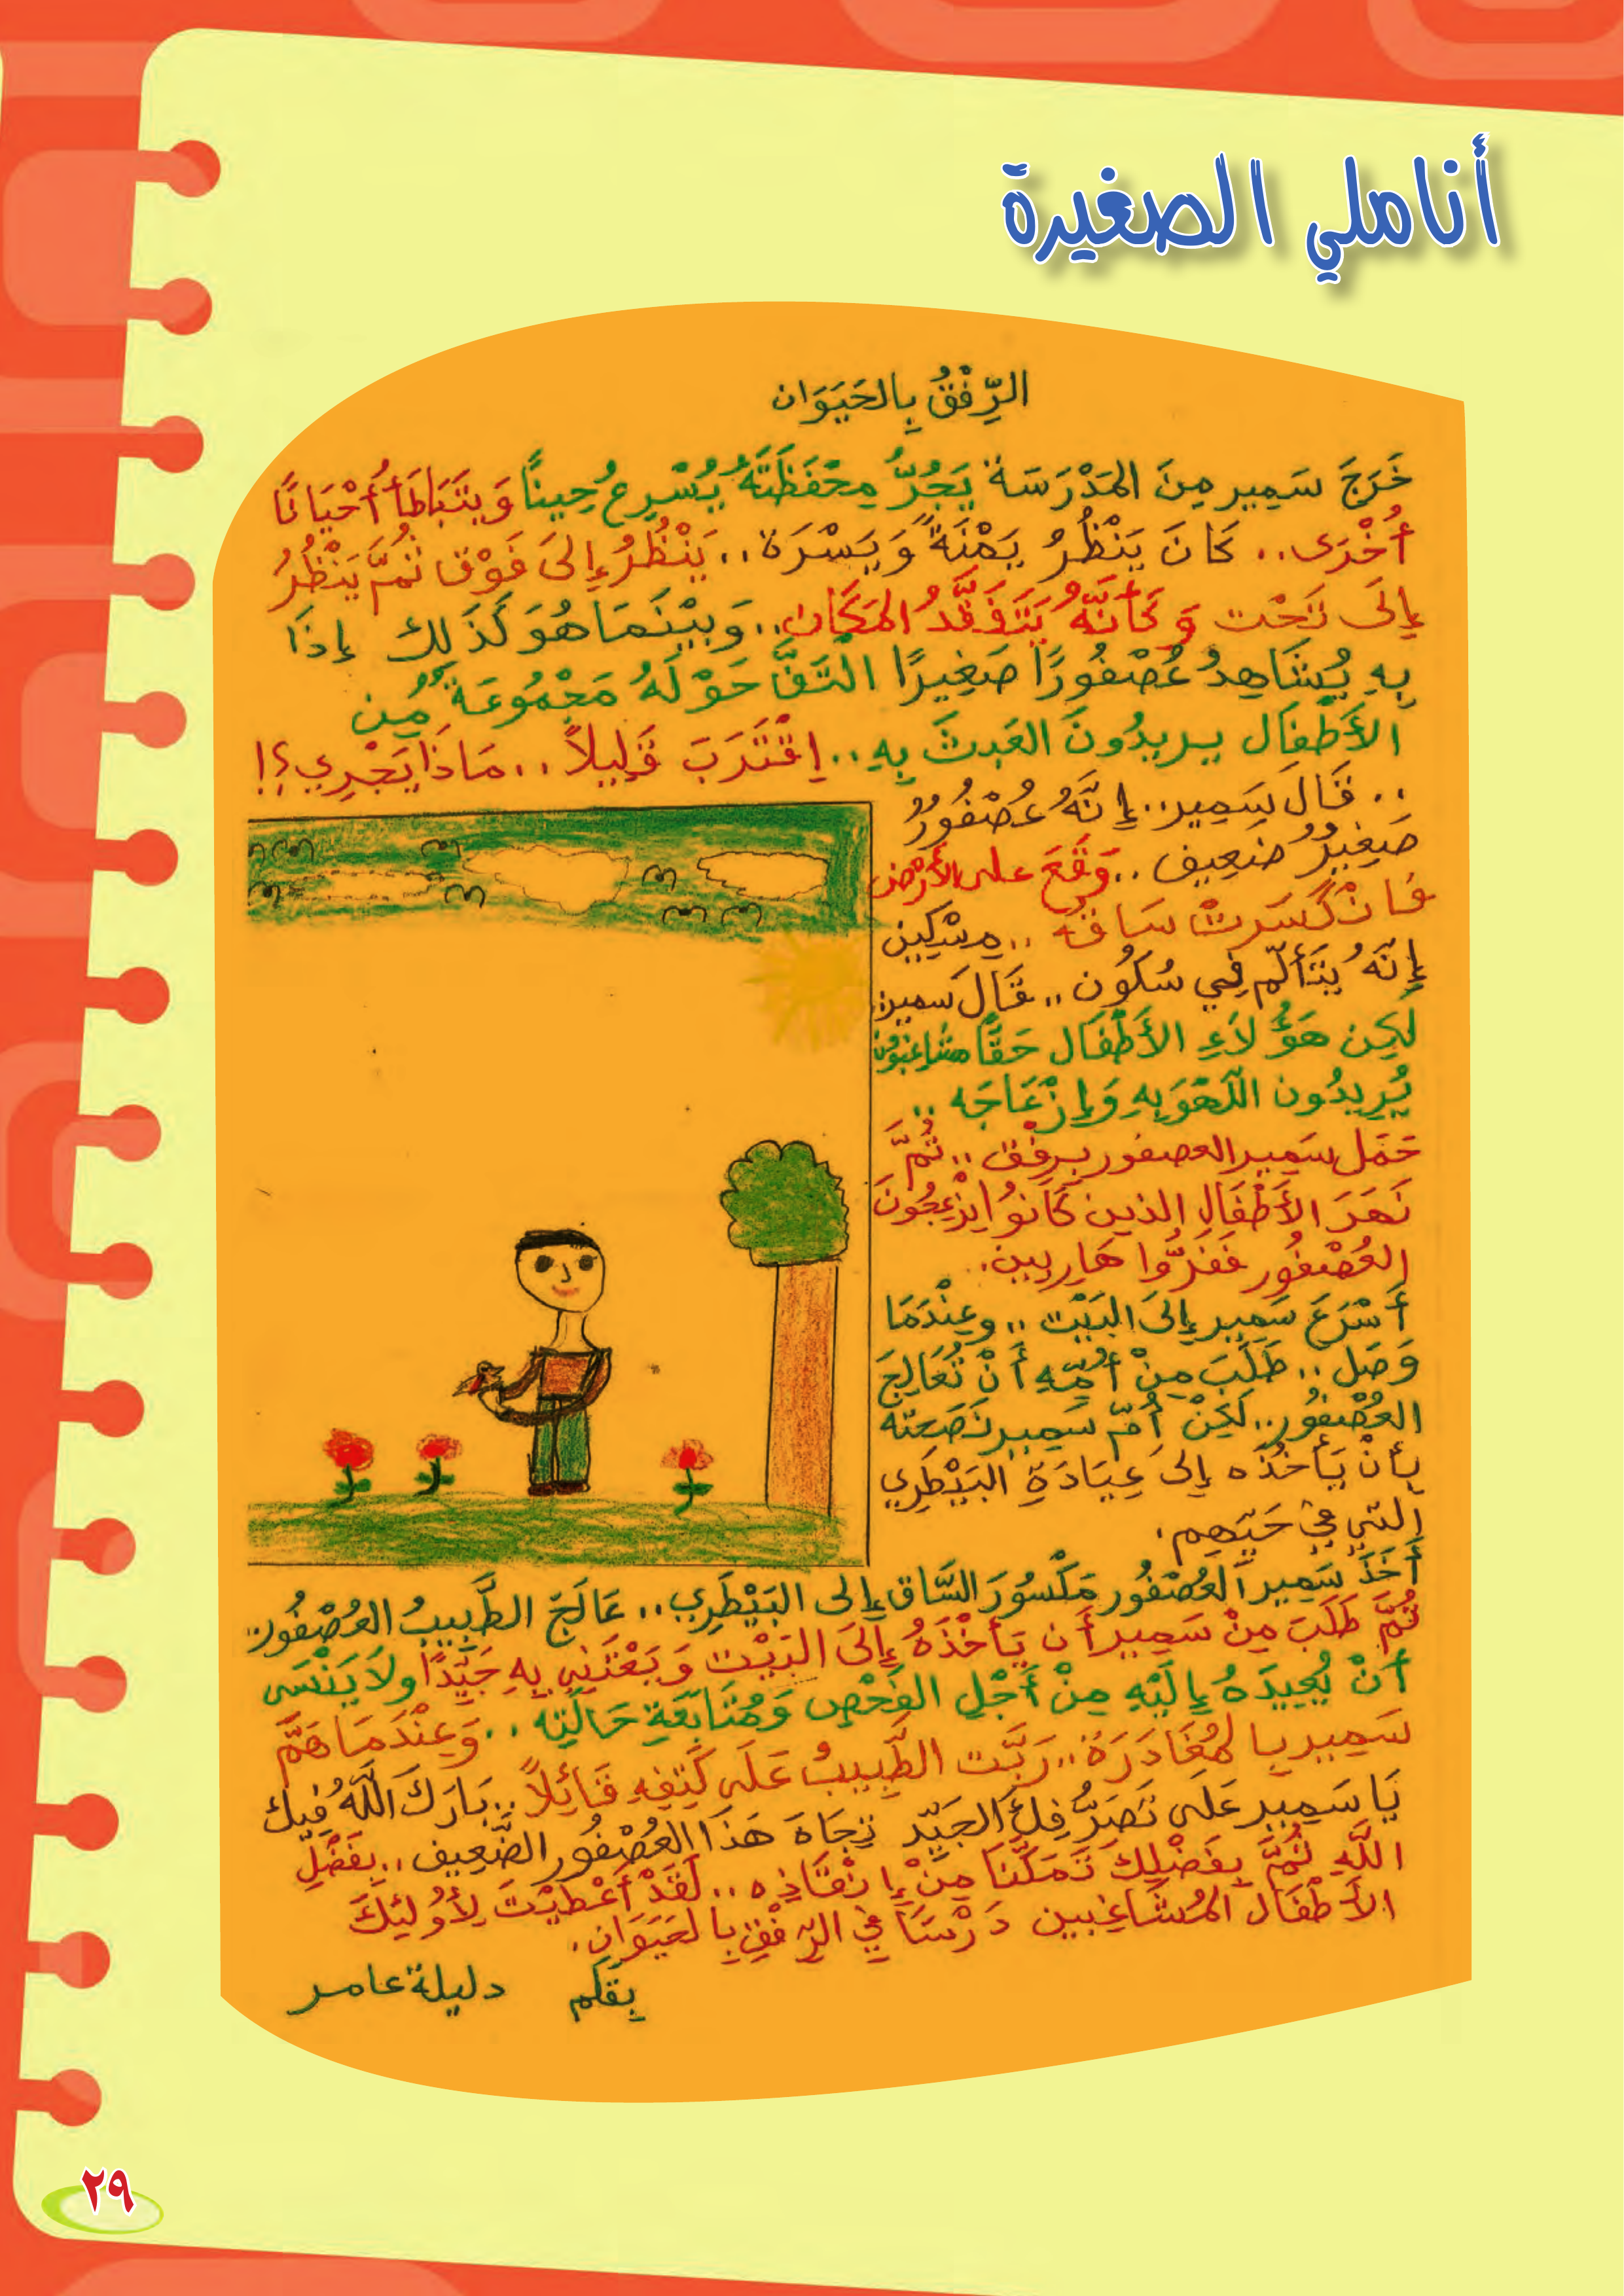 أناملي الصغيرة
الرِّفْقُ بِالحَيَوَان
خَرَجَ سَمِير مِنَ المَدْرَسَة يَجُرُّ مِحْفَظَتَهُ يُسْرِعُ حِيناً وَيَتَبَاطَأ أَحْيَانًا
أُخْرَى.. كَانَ يَنْظُرُ يَمْنَةً وَيَسْرَة.. يَنْظُرُ إِلَى فَوْق ثُمَّ يَنْظُرُ
إِلَى تَحْت وَكَأَنَّهُ يَتَفَقَّدُ المَكَان.. وَبَيْنَمَا هُوَ كَذَلِك إِذَا
بِهِ يُشَاهِدُ عُصْفُورًا صَغِيرًا الْتَفَّ حَوْلَهُ مَجْمُوعَةٌ مِن
الأَطْفَال يريدُونَ العَبثَ بِهِ.. اِقْتَرَبَ قَلِيلاً.. مَاذَا يَجْرِي؟!
.. قَالَ سَمِير.. إِنَّهُ عُصْفُورٌ
صَغِيرٌ ضَعِيف.. وَقَعَ على الأَرْض
فَانْكَسَرتْ سَاقه.. مِسْكِين
إِنَّهُ يَتَأَلّم فِي سُكُون.. قَالَ سَمير:
لَكِن هَؤُلاَءِ الأَطْفَال حَقًّا مشاغبُون
يُرِيدُون اللّهْوَ بِهِ وَإِزْعَاجَه..
حَمَل سَمِير العصفور بِرِفْق.. ثُمَّ
نَهَرَ الأَطْفَالِ الذين كَانُوا يزْعِجُونَ
العُصْفُور فَفَرُّوا هَارِبِين.
أَسْرَعَ سَمِير إِلَى البَيْت.. وعِنْدَمَا
وَصَل.. طَلَبَ مِنْ أُمِّهِ أَنْ تُعَالِجَ
العُصْفُور.. لَكِنْ أُمّ سَمِير نَصَحته
بِأَنْ يَأخُذَه إِلَى عِيَادَةِ البَيْطَرِي
التِي فِي حَيّهِم.
أَخَذَ سَمِير العُصْفُور مَكْسُورَ السَّاق إِلى البَيْطَرِي.. عَالَجَ الطَّبِيبُ العُصْفُور..
ثُمَّ طَلَبَ مِنْ سَمِير أَن يَأخْذَهُ إِلَى البَيْت وَيَعْتَنِي بِهِ جَيِّدًا ولاَ يَنْسَى
أَنْ يُعِيدَهُ إِلَيْهِ مِنْ أَجْلِ الفَحْصِ وَمُتَابَعَةِ حَالَتِه.. وَعِنْدَمَا هَمَّ
سَمِير بِالمُغَادَرَة.. رَبَّت الطَّبِيبُ عَلَى كَتِفِهِ قَائِلاً.. بَارَكَ اللَّهُ فِيك
يَا سَمِير عَلَى تَصَرُّفِكَ الجَيِّد تِجَاهَ هَذَا العُصْفُور الضَّعِيف.. بِفَضْلِ
اللَّهِ ثُمَّ بِفَضْلِكَ تَمَكَّنَا مِنْ إِنْقَاذِه.. لَقَدْ أَعْطَيْتَ لأُولئِكَ
الأَطْفَال المُشَاغِبِين دَرْسًا فِي الرِّفْقِ بِالحَيَوَانِ.
بِقَلَم دليلة عامر
٢٩